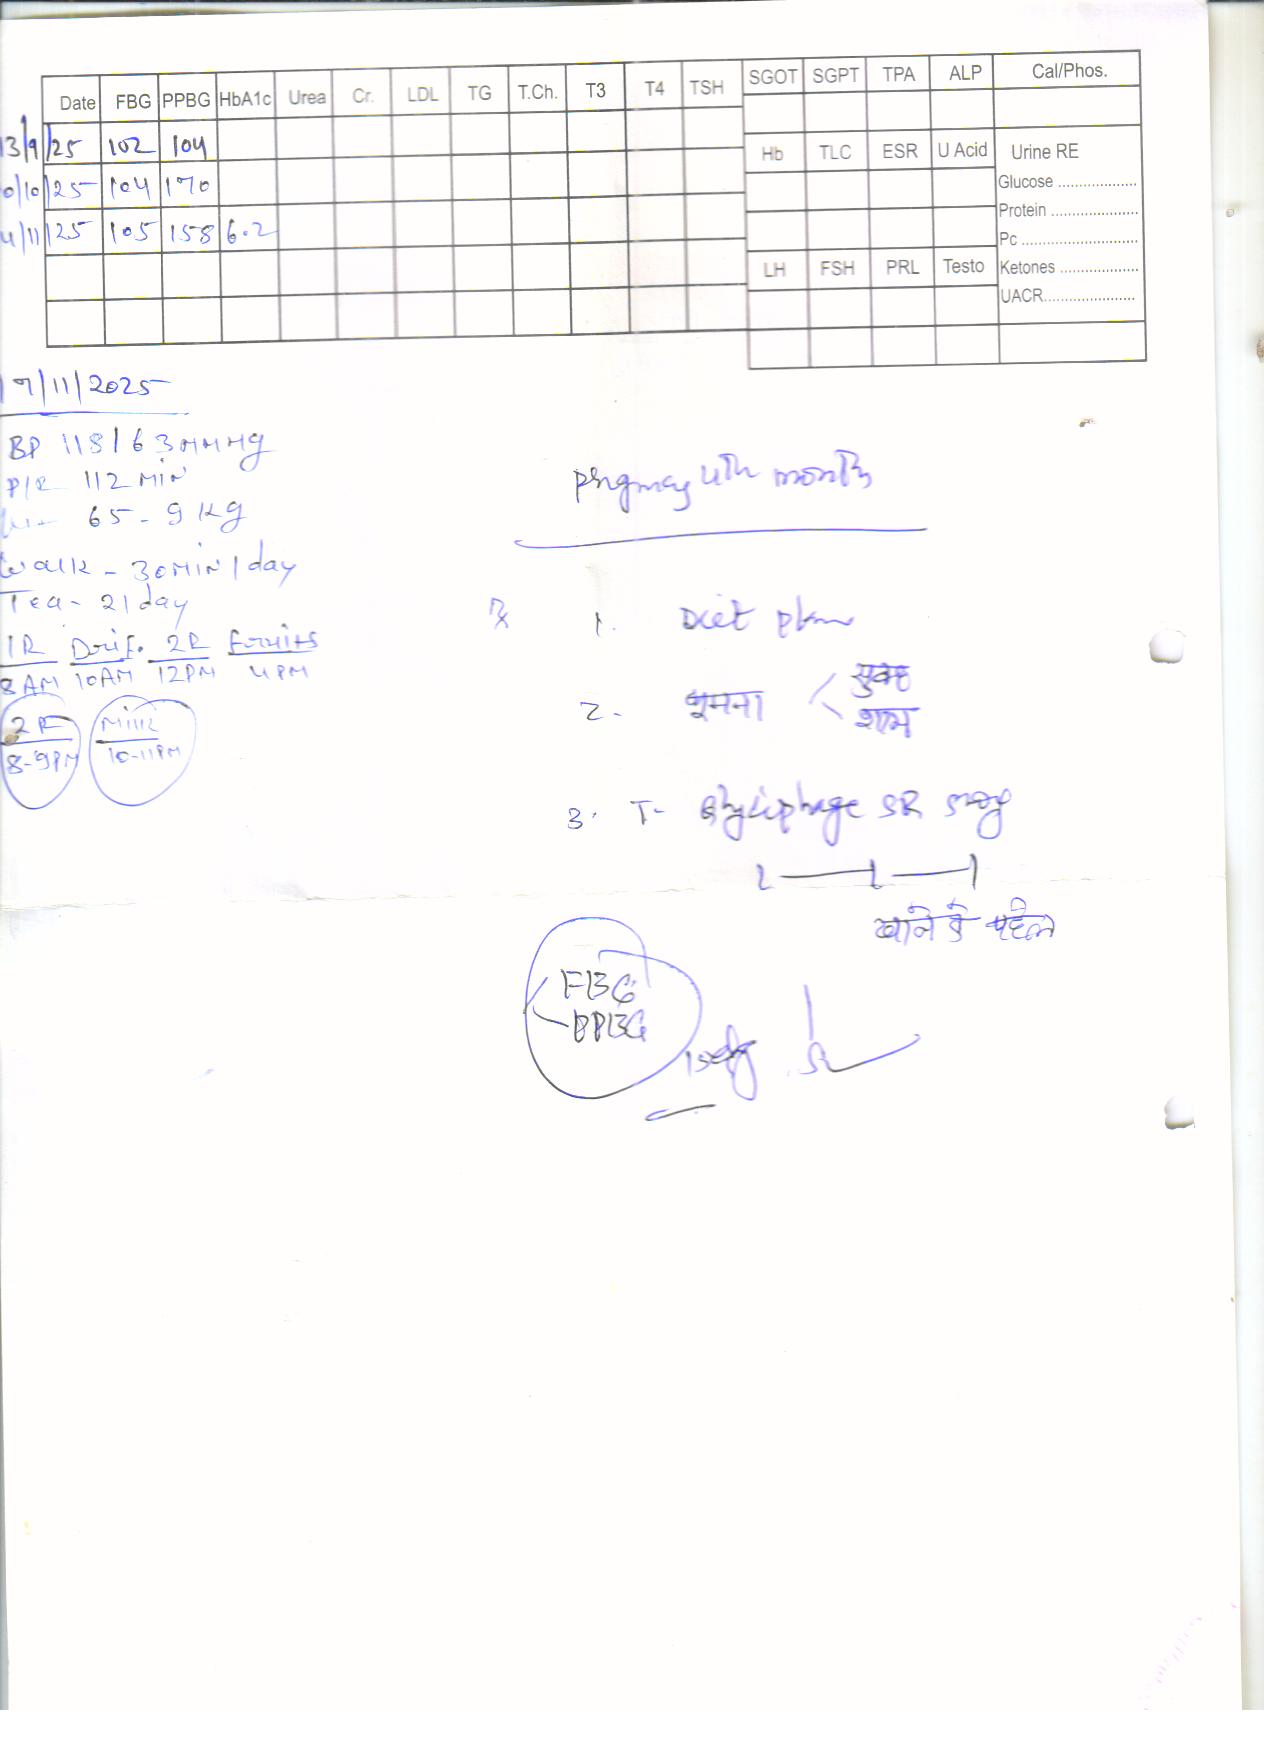 Date FBG PPBG HbA1c Urea Cr. LDL TG T.Ch. T3 T4 TSH SGOT SGPT TPA ALP Cal/Phos.
13/9/25 102 104
0/10/25 104 170
4/11/25 105 158 6.2
Hb TLC ESR U Acid Urine RE
Glucose ..................
Protein ......................
Pc .............................
LH FSH PRL Testo Ketones ....................
UACR.......................
19/11/2025
BP 118/63 MMHg
P/R 112 MIN
65-9 Kg
Walk - 30 MIN/day
Tea - 2/day
1R 2R Fruits
8AM 10AM 12PM 4PM
2R Milk
8-9PM 10-11PM
4th month
Rx 1. Diet plan
2. घूमना < सुबह
शाम
3. T- Glyciphage SR
खाने के पहले
FBG
PPBG